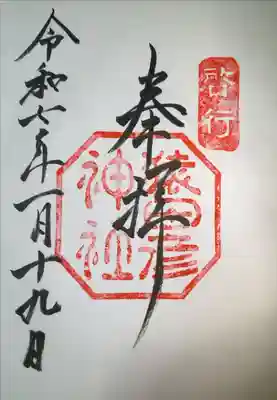 啓行
奉拝
猿田彦
神社
令和六年一月十九日